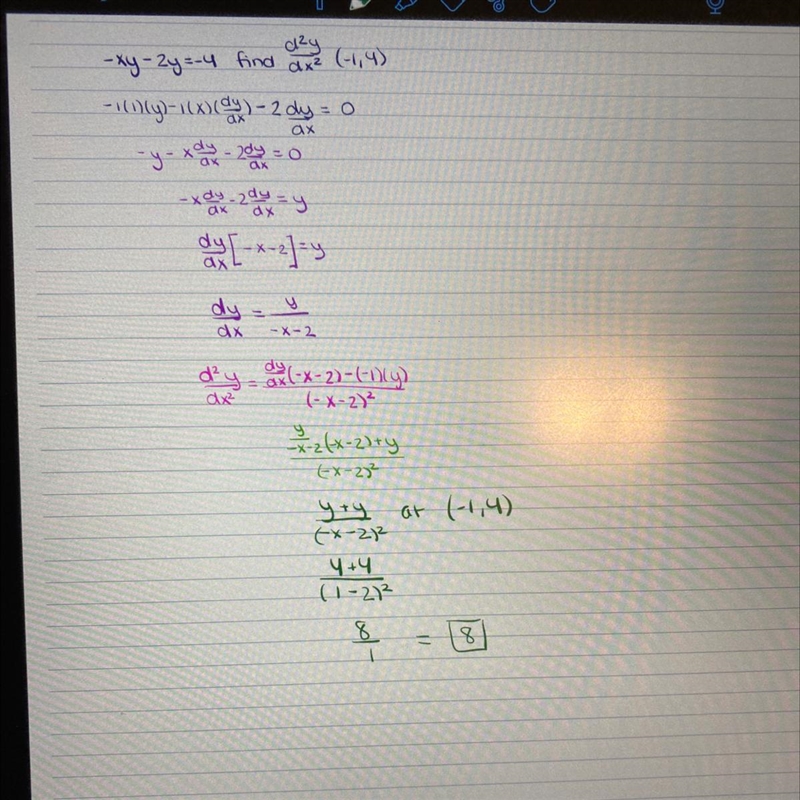 -xy - 2y = -4 find d²y/dx² (-1,4)
-1(1)(y) - 1(x)(dy/dx) - 2 dy/dx = 0
-y - x dy/dx - 2 dy/dx = 0
-x dy/dx - 2 dy/dx = y
dy/dx [-x-2] = y
dy/dx = y/(-x-2)
d²y/dx² = (dy/dx (-x-2) - (-1)(y))/(-x-2)²
(y/(-x-2) (-x-2) + y)/(-x-2)²
(y+y)/(-x-2)² at (-1,4)
(4+4)/(1-2)²
8/1 = 8